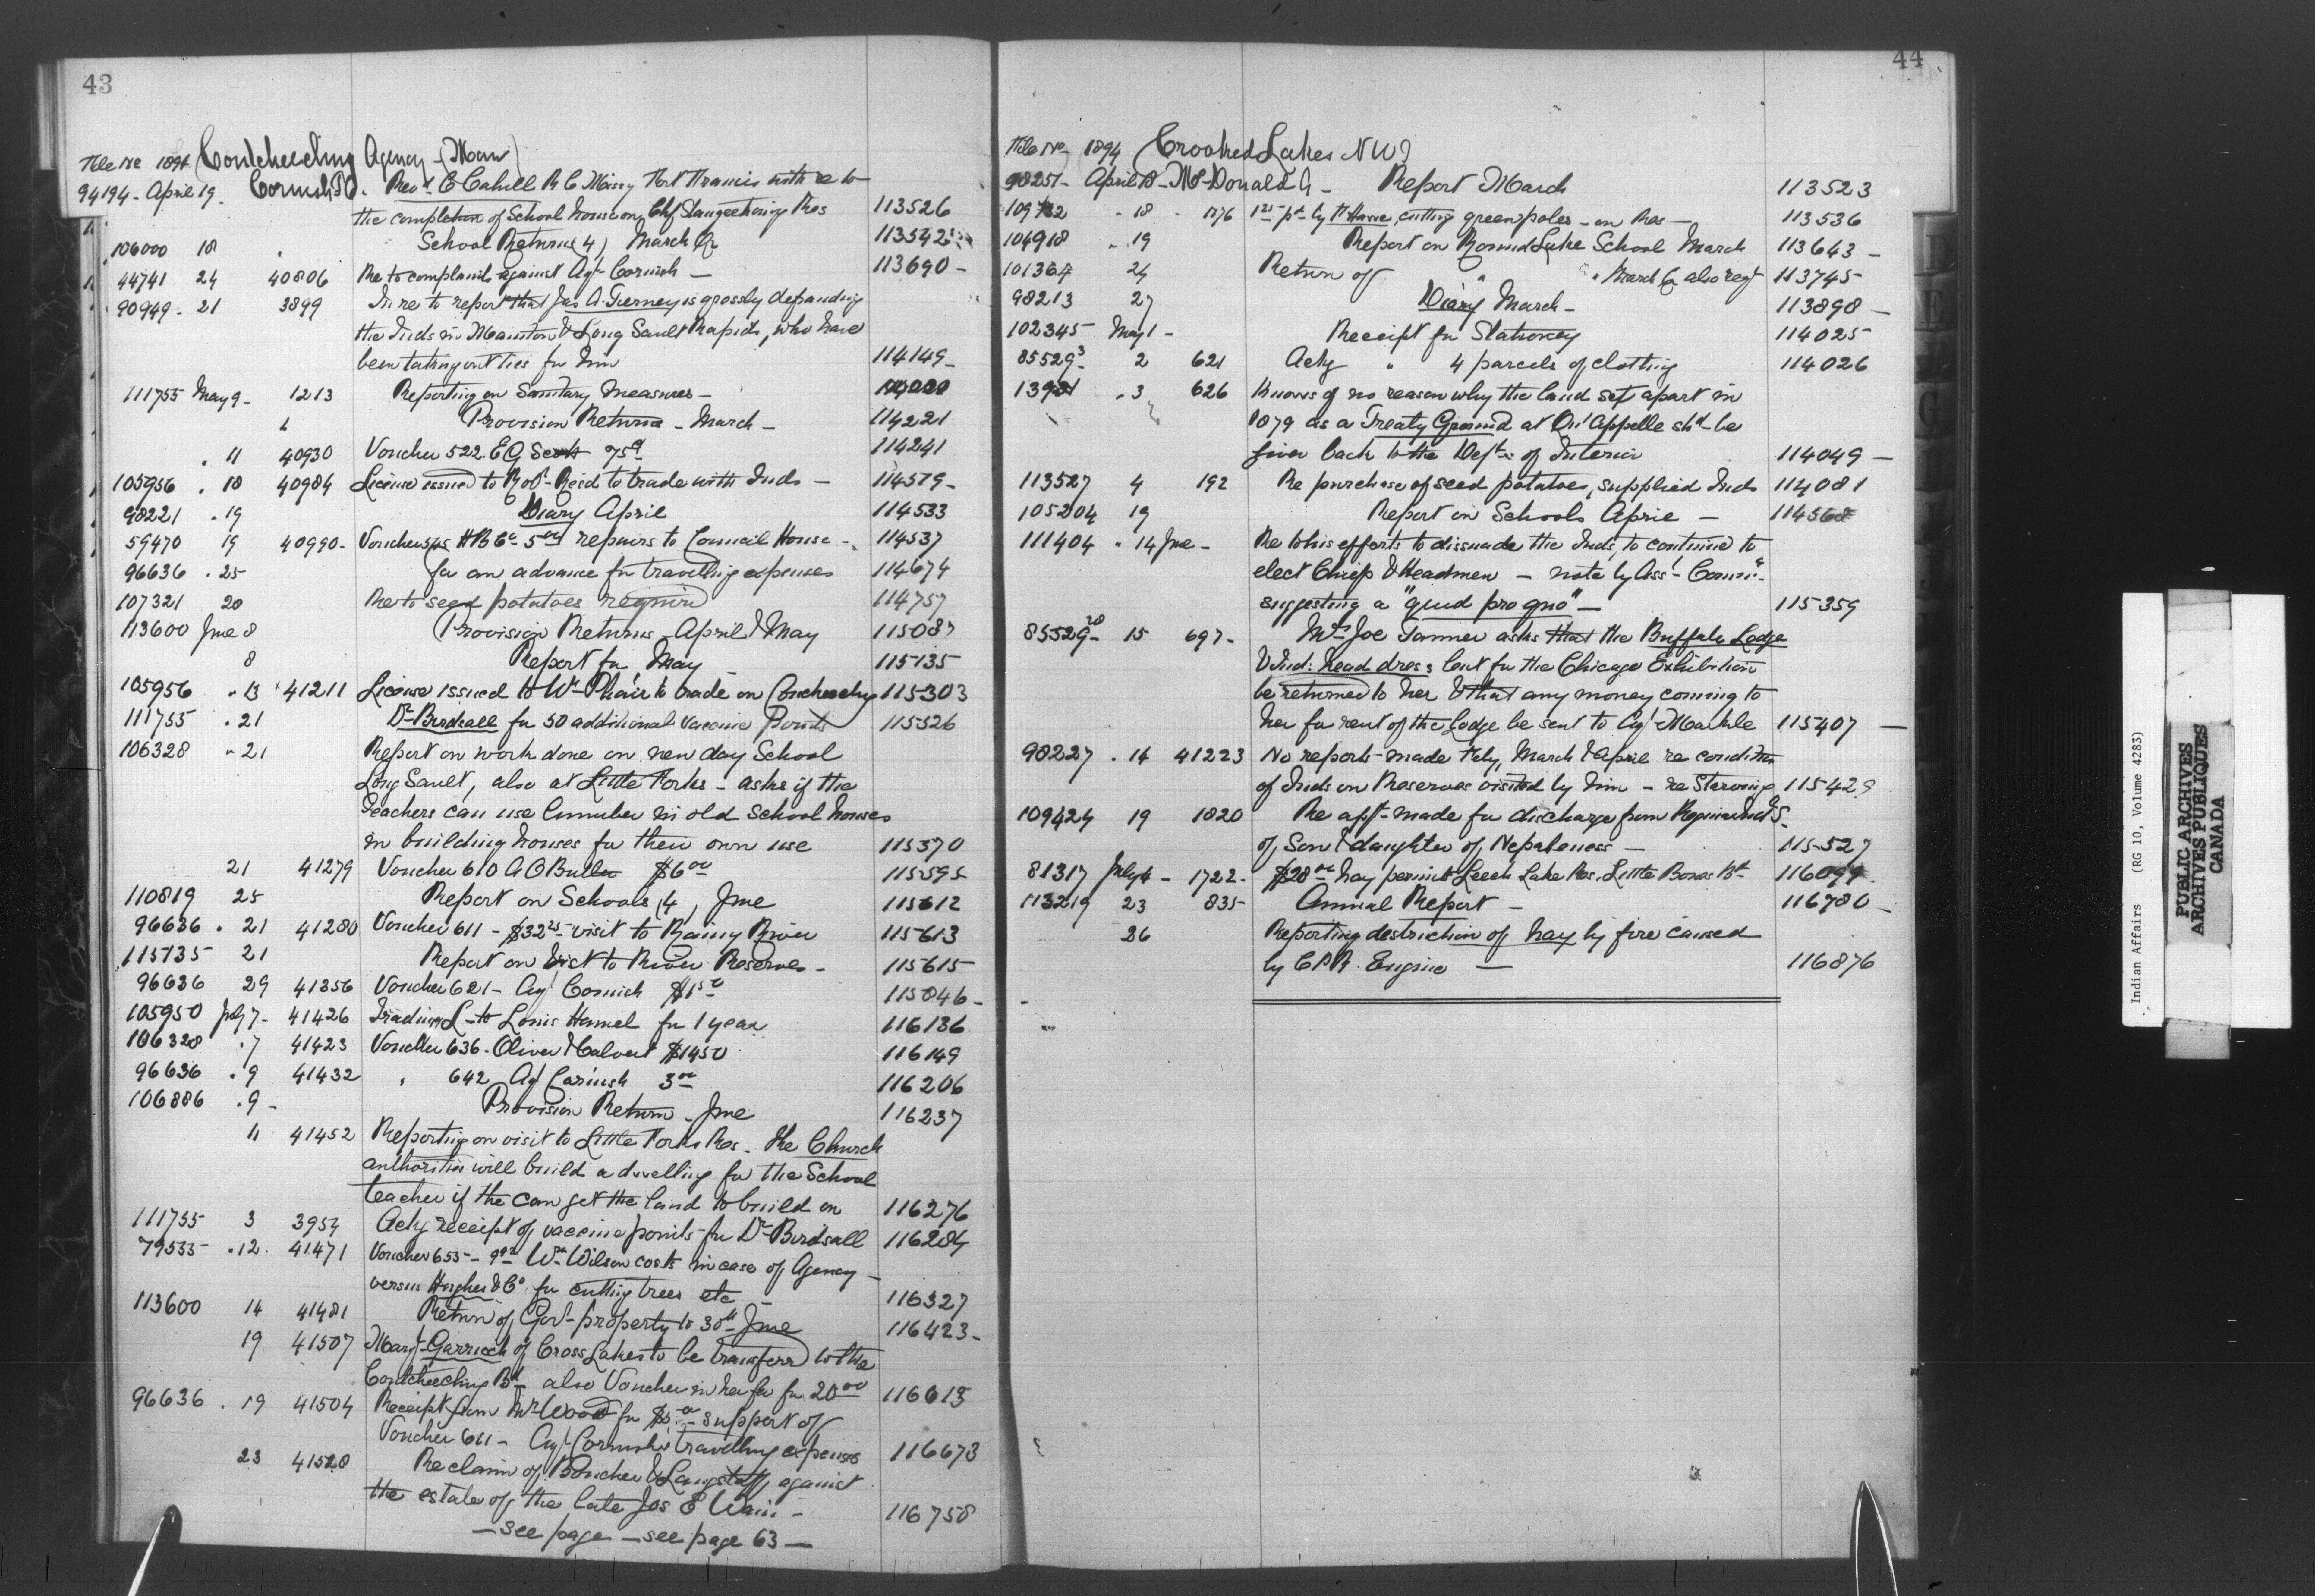 43
File No 1894 Coutcheeching Agency - (Man)
94194 - April 19. Cornish J.C. Revd C Cahill R C Missy Fort Francis with re to
the completion of School House on Chf Stangecoming Res 113526
106000 18 " School Returns 4, March Qr 113542
44741 24 40806 Re to complaint against Agt Cornish - 113690 -
90949 - 21 3899 In re to report that Jas A. Tierney is grossly defrauding
the Inds in Manitou & Long Sault Rapids, who have
been taking out ties for him 114149 -
111755 May 9 - 1213 Reporting on Sanitary measures -
Provision Returns - March - 114221
. 11 40930 Voucher 522. E G Scott 75c 114241
105956 . 18 40984 License issued to Robt Reid to trade with Inds - 114579 -
98221 . 19 Diary April 114533
59470 19 40990 - Voucher 545 H B Co 5 00 repairs to Council House - 114537
96636 . 25 for an advance for travelling expenses 114674
107321 28 Re to seed potatoes required 114757
113600 June 8 Provision Returns - April & May 115087
8 Report for May 115135
105956 . 13 41211 License issued to Wm Phair to trade on Coucheeching 115303
111755 . 21 Dr Birdsall for 50 additional vaccine Points 115526
106328 " 21 Report on work done on new day School
Long Sault, also at Little Forks - asks if the
teachers can use lumber in old School houses
in building houses for their own use 115570
21 41279 Voucher 610 A O Butler $6 00 115595
110819 25 Report on Schools, 4, June 115612
96636 . 21 41280 Voucher 611 - $32 25 - visit to Rainy River 115613
115135 21 Report on visit to River Reserves - 115615
96636 29 41356 Voucher 621 - Agt Cornish $1 50 115846 -
105950 July 7 - 41426 Trading L - to Louis Hamel for 1 year 116136
106328 . 7 41423 Voucher 636 - Oliver & Calvert $1450 116149
96636 . 9 41432 " 642 Agt Cornish 3 00 116206
106886 . 9 - Provision Return - June 116237
11 41452 Reporting on visit to Little Forks Res. The Church
authorities will build a dwelling for the School
teacher if the can get the land to build on 116276
111755 3 3954 Ackg receipt of vaccine points for Dr Birdsall 116284
79535 - . 12. 41471 Voucher 655 - Wm Wilson costs in case of Agency -
versus Hughes & Co for cutting trees etc - 116327
113600 14 41481 Return of Govt property to 30th June 116423 -
19 41507 Margt Garrioch of Cross Lakes to be transferd to the
Coutcheeching Bd also Voucher in her fa for 20 00 116613
96636 . 19 41504 Receipt from Mr Wood for $5 00 - support of
Voucher 611 - Agt Cornish's travelling expenses 116673
23 41528 Re claim of Boucher & Langstaff against
the estate of the late Jos E Wain - 116758
- see page - see page 63 -
44
File No 1894 Crooked Lakes NWT
98251 - April 18 - McDonald A - Report March 113523
109732 . 18 - 1276 1st pt by cutting green poles - on Res - 113536
104918 . 19 Report on Round Lake School March 113643 -
101364 24 Return of " " March Qr also regt 113745
98213 27 Diary March - 113898 -
102345 May 1 - Receipt for Stationery 114025
85529 3 - 2 621 Ackg " 4 parcels of clothing 114026
13921 . 3 626 Knows of no reason why the land set apart in
1879 as a Treaty Ground at Qu'Appelle shd be
given back to the Dept of Interior 114049 -
113527 4 192 Re purchase of seed potatoes, supplied Inds 114081
105204 19 Report on Schools April - 114568
111404 . 14 June - Re to his efforts to dissuade the Inds, to continue to
elect Chiefs & Headmen - note by Asst Commr
suggesting a "quid pro quo" - 115359
85529 28 - 15 697 - Mrs Joe Tanner asks that the Buffalo Lodge
& Ind: head dress lent for the Chicago Exhibition
be returned to her & that any money coming to
her for rent of the Lodge be sent to Agt Markle 115407 -
98227 . 14 41223 No reports made Feby, March & April re condition
of Inds on Reserves visited by him - re Starving 115429
109424 19 1820 Re appt made for discharge from Regina Ind S.
of Son & daughter of Nepahness - 115527
81317 July 4 - 1722 - $28 00 hay permit Leech Lake Res. Little Bones Bd 116094
113219 23 835 Annual Report - 116780 -
26 Reporting destruction of hay by fire caused
by C P R. Engine - 116876
D
E
F
G
Indian Affairs (RG 10, Volume 4283)
PUBLIC ARCHIVES
ARCHIVES PUBLIQUES
CANADA